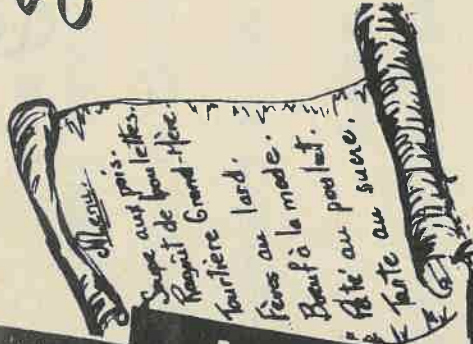 Menu
Soupe aux pois.
Ragoût de boulettes.
Tourtière Grand-Mère
Fèves au lard.
Bœuf à la mode.
* Pâté au poulet.
* Tarte au sucre.